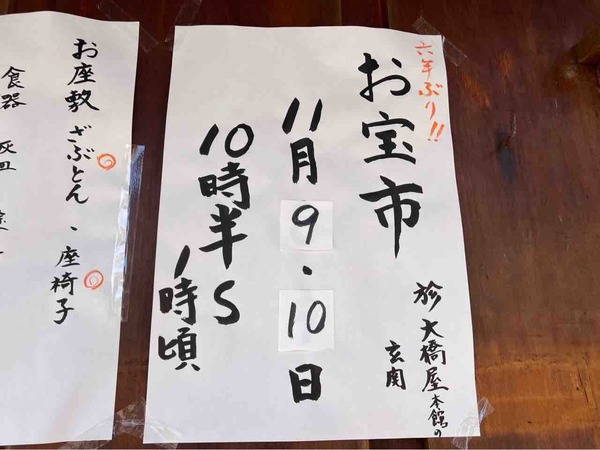 六年ぶり!!
お宝市
11月9・10日
10時半～
1時頃
於 大橋屋本館の
玄関
お座敷 ざぶとん、座椅子
食器 灰皿